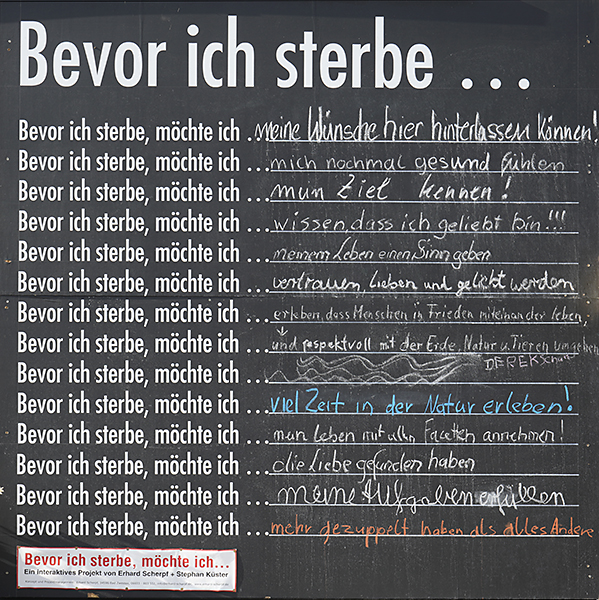 Bevor ich sterbe ...
Bevor ich sterbe, möchte ich ... meine Wünsche hier hinterlassen können!
Bevor ich sterbe, möchte ich ... mich nochmal gesund fühlen
Bevor ich sterbe, möchte ich ... mein Ziel kennen!
Bevor ich sterbe, möchte ich ... wissen, dass ich geliebt bin!!!
Bevor ich sterbe, möchte ich ... meinem Leben einen Sinn geben
Bevor ich sterbe, möchte ich ... vertrauen, lieben und geliebt werden
Bevor ich sterbe, möchte ich ... erleben, dass Menschen in Frieden miteinander leben,
Bevor ich sterbe, möchte ich ... und respektvoll mit der Erde, Natur u. Tieren umgehen
Bevor ich sterbe, möchte ich ... DEREK
Bevor ich sterbe, möchte ich ... viel Zeit in der Natur erleben!
Bevor ich sterbe, möchte ich ... mein Leben mit allen Facetten annehmen!
Bevor ich sterbe, möchte ich ... die Liebe gefunden haben
Bevor ich sterbe, möchte ich ... meine Aufgaben erfüllen
Bevor ich sterbe, möchte ich ... mehr gezuppelt haben als alles Andere
Bevor ich sterbe, möchte ich...
Ein interaktives Projekt von Erhard Scherpf + Stephan Küster